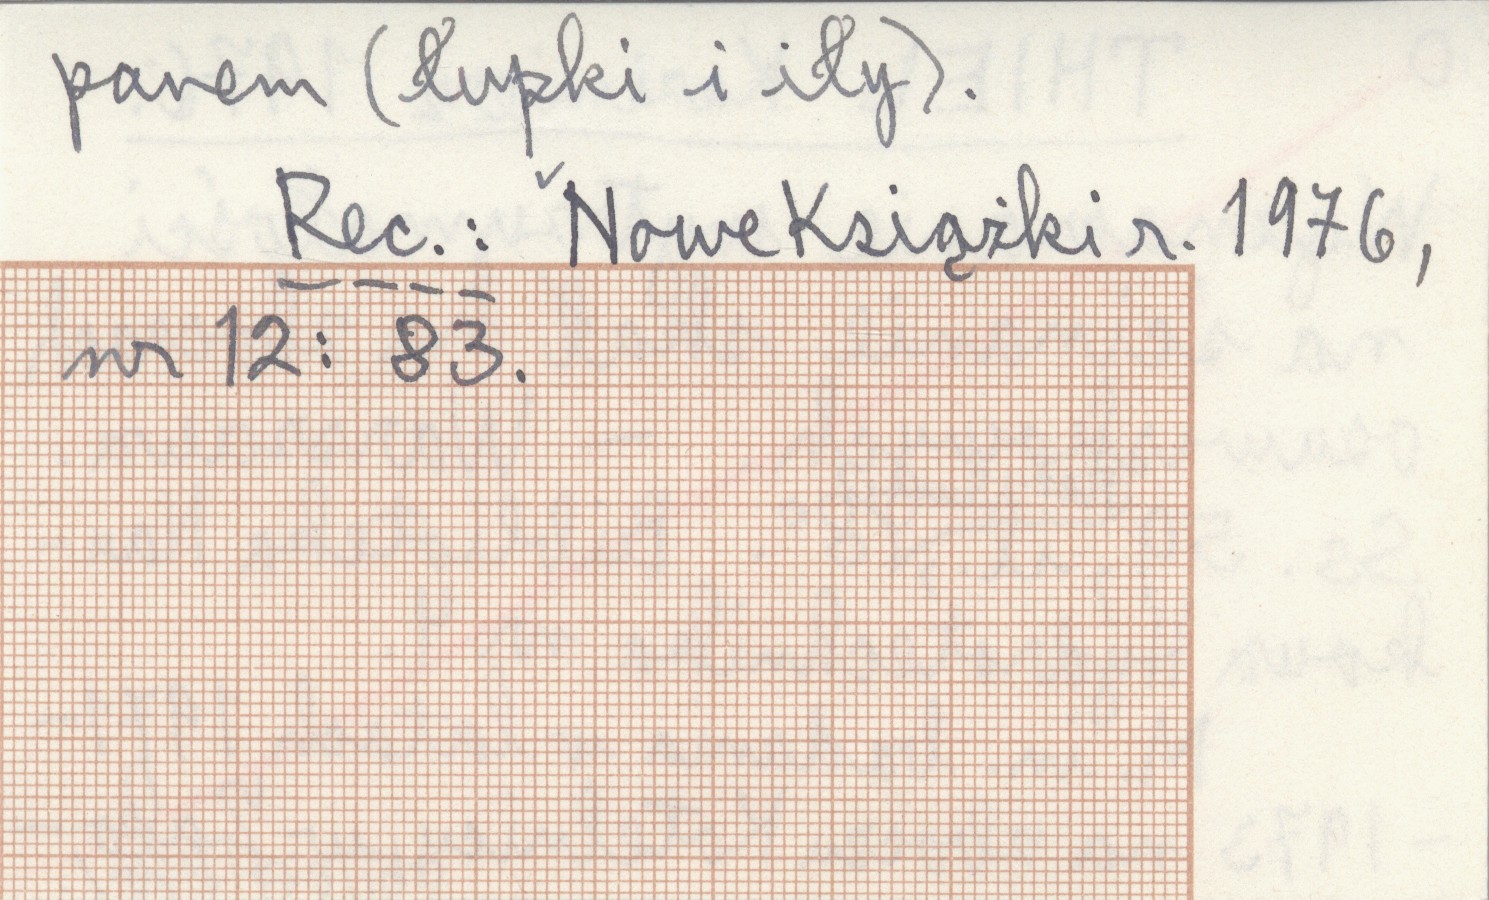 parem (łupki i iły).
Rec.: Nowe Książki r. 1976,
nr 12: 83.